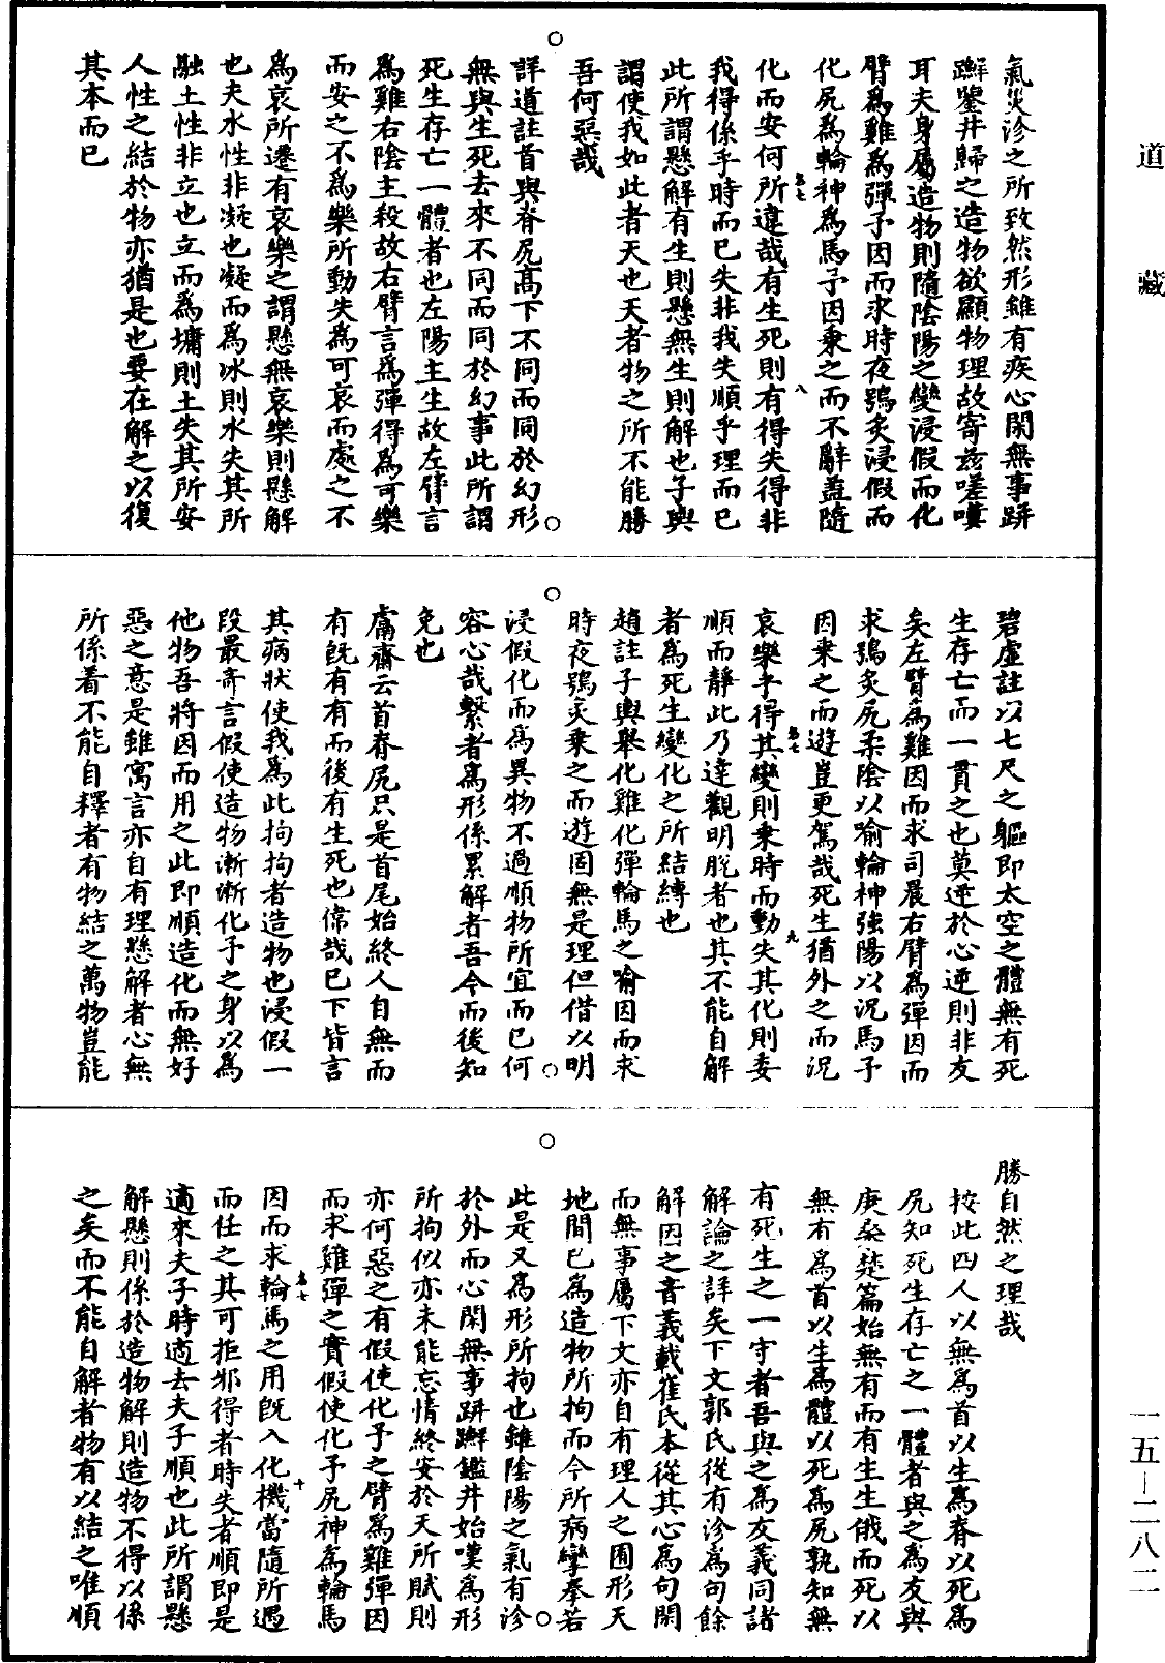 道藏
氣災沴之所致然形雖有疾心閑無事跰
𨇤鑒井歸之造物欲顯物理故寄玆嗟嘆
耳夫身屬造物則隨陰陽之變浸假而化
臂為雞為彈予因而求時夜鴞炙浸假而
化尻為輪神為馬予因乘之而不辭蓋隨
化而安何所違哉有生死則有得失得非
我得係乎時而已失非我失順乎理而已
此所謂懸解有生則懸無生則解也子輿
謂使我如此者天也天者物之所不能勝
吾何惡哉
詳道註首與脊尻高下不同而同於幻形
無與生死去來不同而同於幻事此所謂
死生存亡一體者也左陽主生故左臂言
為雞右陰主殺故右臂言為彈得為可樂
而安之不為樂所動失為可哀而處之不
為哀所遷有哀樂之謂懸無哀樂則懸解
也夫水性非凝也凝而為冰則水失其所
融土性非立也立而為墉則土失其所安
人性之結於物亦猶是也要在解之以復
其本而已
碧虛註以七尺之軀即太空之體無有死
生存亡而一貫之也莫逆於心逆則非友
矣左臂為雞因而求司晨右臂為彈因而
求鴞炙尻柔陰以喻輪神強陽以況馬予
因乘之而遊豈更駕哉死生猶外之而況
哀樂乎得其變則乘時而動失其化則委
順而靜此乃達觀明脫者也其不能自解
者為死生變化之所結縛也
趙註子輿舉化雞化彈輪馬之喻因而求
時夜鴞炙乘之而遊固無是理但借以明
浸假化而為異物不過順物所宜而已何
容心哉繫者為形係累解者吾今而後知
免也
鬳齋云首脊尻只是首尾始終人自無而
有既有有而後有生死也偉哉已下皆言
其病狀使我為此拘拘者造物也浸假一
段最奇言假使造物漸漸化予之身以為
他物吾將因而用之此即順造化而無好
惡之意是雖寓言亦自有理懸解者心無
所係着不能自釋者有物結之萬物豈能
勝自然之理哉
按此四人以無為首以生為脊以死為
尻知死生存亡之一體者與之為友與
庚桑楚篇始無有而有生生俄而死以
無有為首以生為體以死為尻孰知無
有死生之一守者吾與之為友義同諸
解論之詳矣下文郭氏從有沴為句餘
解因之音義載崔氏本從其心為句閑
而無事屬下文亦自有理人之囿形天
地間已為造物所拘而今所病攣拳若
此是又為形所拘也雖陰陽之氣有沴
於外而心閑無事跰𨇤鑑井始嘆為形
所拘似亦未能忘情終安於天所賦則
亦何惡之有假使化予之臂為雞彈因
而求雞彈之實假使化予尻神為輪馬
因而求輪馬之用既入化機當隨所遇
而任之其可拒邪得者時失者順即是
適來夫子時適去夫子順也此所謂懸
解懸則係於造物解則造物不得以係
之矣而不能自解者物有以結之唯順
一五—二八二